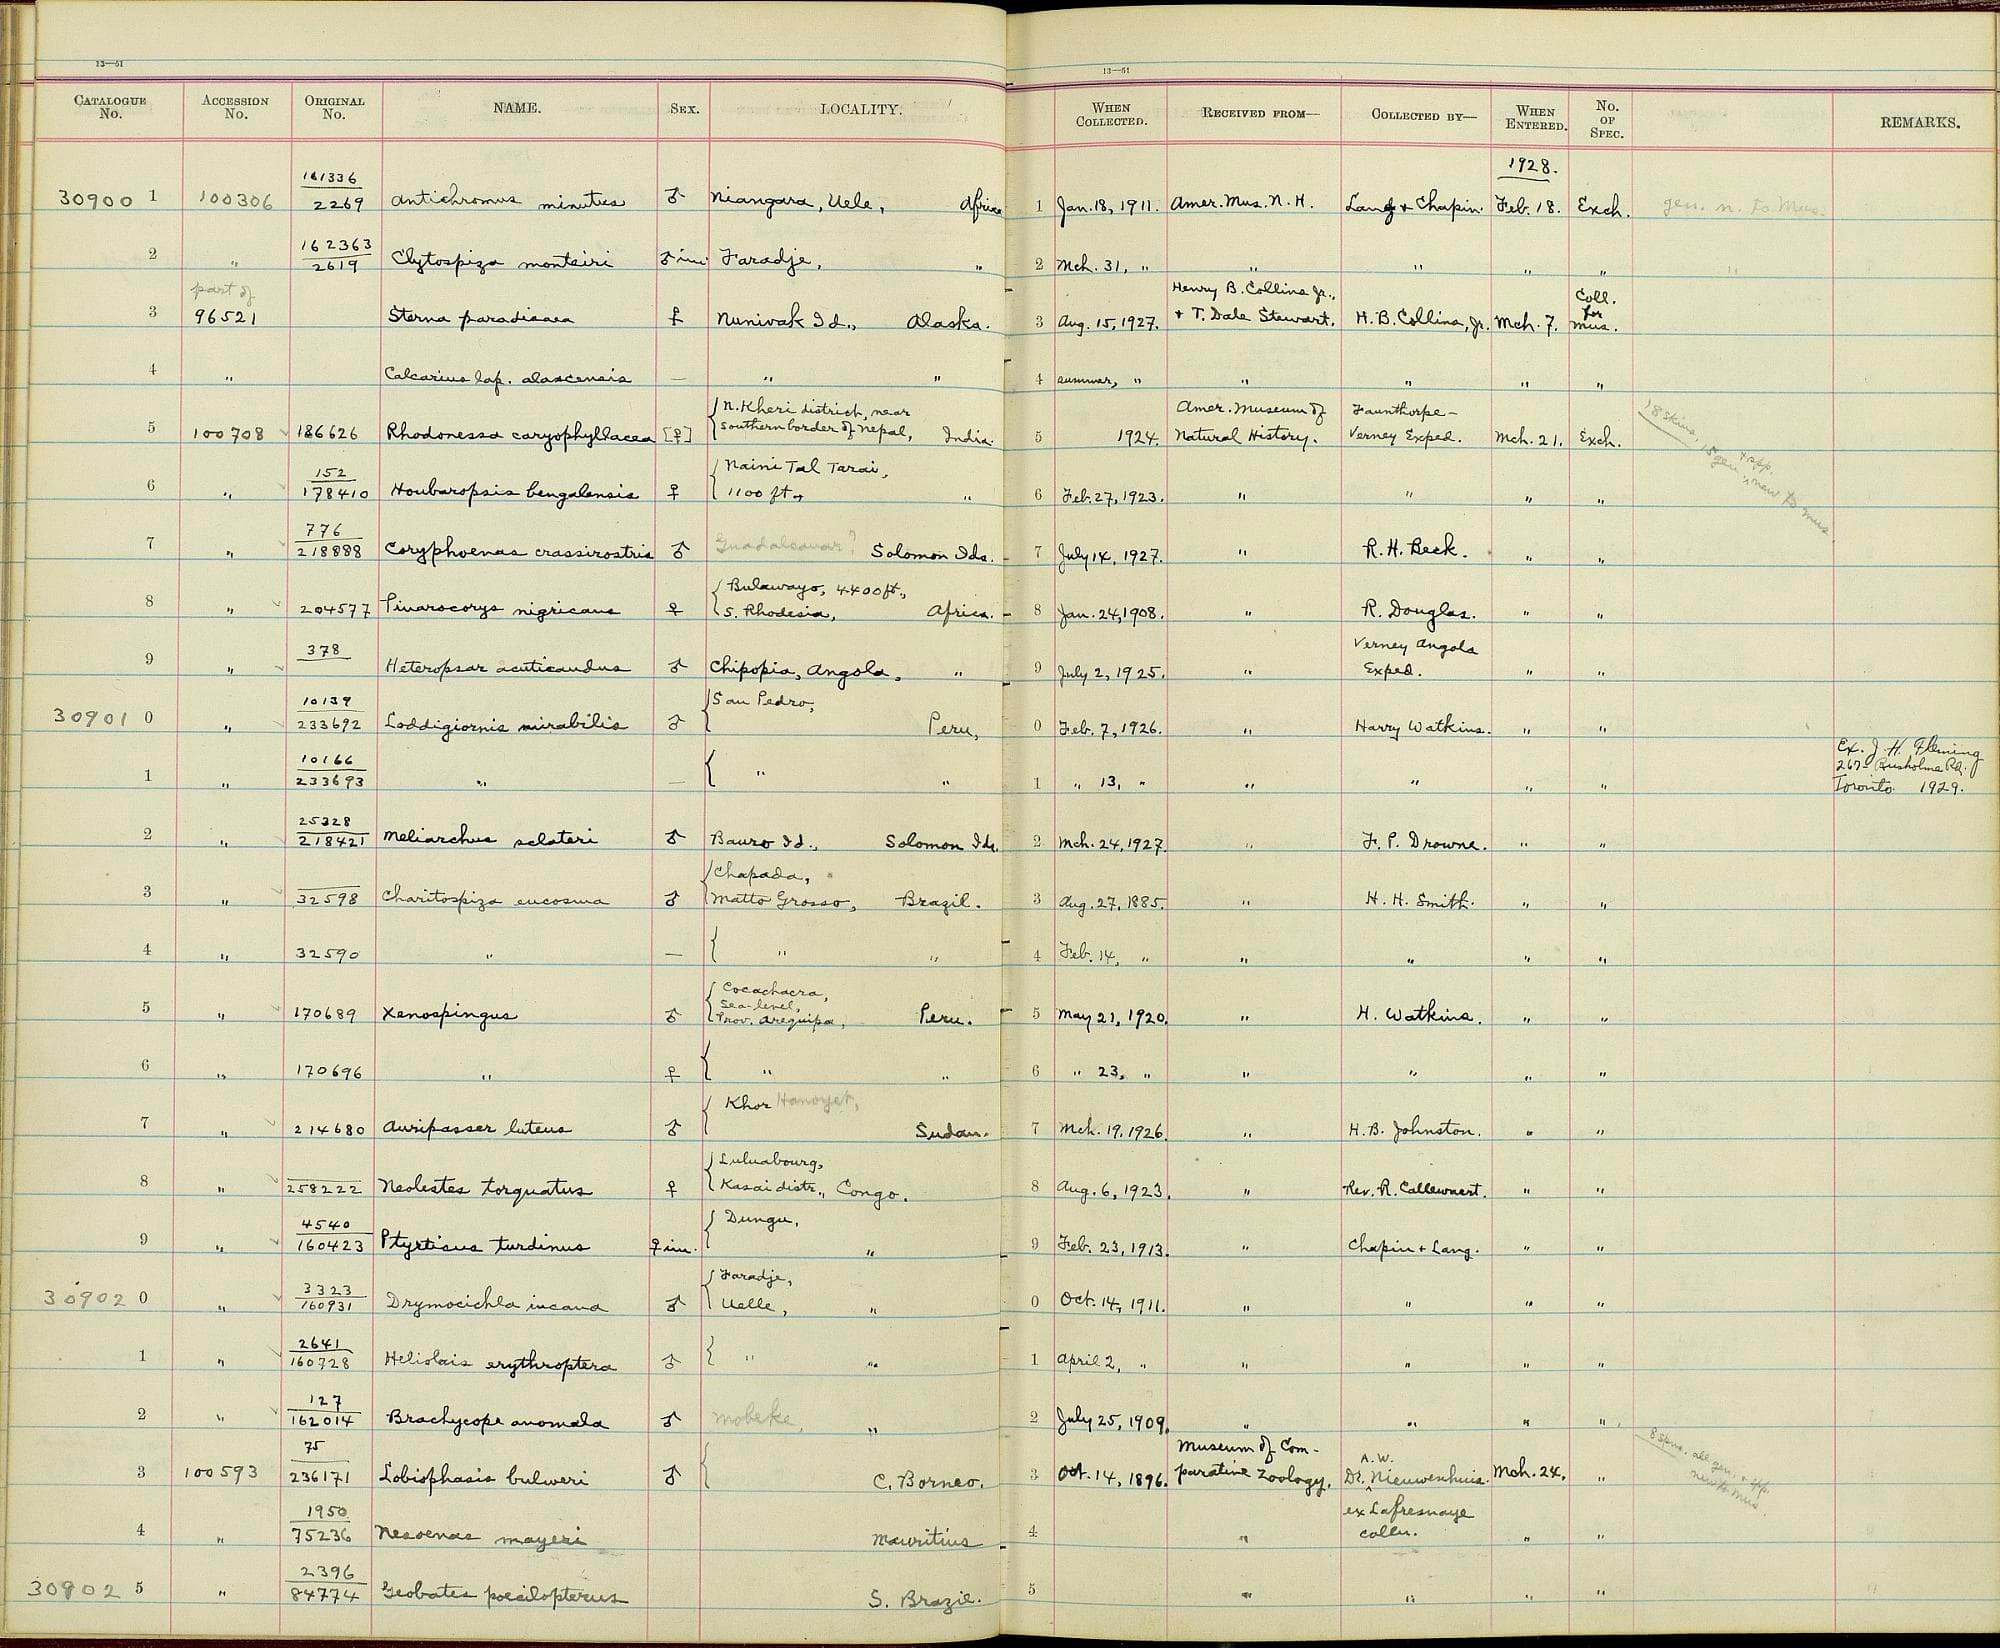 13—51
CATALOGUE No. ACCESSION No. ORIGINAL No. NAME. SEX. LOCALITY.
161336
30900 1 100306 2269 Antichromus minutus ♂ Niangara, Uele, Africa
162363
2 " 2619 Clytospiza monteiri ♂ im. Faradje, "
part of
3 96521 Sterna paradisaea ♀ Nunivak Id., Alaska.
4 " Calcarius lap. alascensis — " "
N. Kheri district, near
5 100708 186626 Rhodonessa caryophyllacea [♀] southern border of Nepal, India.
152 Naini Tal Tarai,
6 " 178410 Houbaropsis bengalensis ♀ 1100 ft., "
776
7 " 218888 Coryphoenas crassirostris ♂ Guadalcanar? Solomon Ids.
Bulawayo, 4400 ft.,
8 " 204577 Pinarocorys nigricans ♀ S. Rhodesia, Africa.
378
9 " Heteropsar acuticaudus ♂ Chipopia, Angola, "
10139 San Pedro,
30901 0 " 233692 Loddigiornis mirabilis ♂ Peru,
10166
1 " 233693 " — " "
25328
2 " 218421 Meliarchus sclateri ♂ Bauro Id., Solomon Ids.
Chapada,
3 " 32598 Charitospiza eucosma ♂ Matto Grosso, Brazil.
4 " 32590 " — " "
Cocachacra,
Sea-level,
5 " 170689 Xenospingus ♂ Prov. Arequipa, Peru.
6 " 170696 " ♀ " "
Khor Hanoyet,
7 " 214680 Auripasser luteus ♂ Sudan.
Luluabourg,
8 " 258222 Neolestes torquatus ♀ Kasai distr., Congo.
4540 Dungu,
9 " 160423 Ptyrticus turdinus ♀ im. "
3323 Faradje,
30902 0 " 160931 Drymocichla incana ♂ Uelle, "
2641
1 " 160728 Heliolais erythroptera ♂ " "
127
2 " 162014 Brachycope anomala ♂ Mobeke, "
75
3 100593 236171 Lobiophasis bulweri ♂ C. Borneo.
1950
4 " 75236 Nesoenas mayeri Mauritius
2396
30902 5 " 84774 Geobates poecilopterus S. Brazil.
13—51
WHEN COLLECTED. RECEIVED FROM— COLLECTED BY— WHEN ENTERED. No. OF SPEC. REMARKS.
1928.
1 Jan. 18, 1911. Amer. Mus. N. H. Lang + Chapin. Feb. 18. Exch. gen. n. to Mus.
2 Mch. 31, " " " " " "
Henry B. Collins Jr., Coll. for
3 Aug. 15, 1927. + T. Dale Stewart. H. B. Collins, Jr. Mch. 7. Mus.
4 summer, " " " " "
Amer. Museum of Faunthorpe-
5 1924. Natural History. Verney Exped. Mch. 21. Exch.
18 skins, 15 gen. + spp. new to Mus
6 Feb. 27, 1923. " " " "
7 July 14, 1927. " R. H. Beck. " "
8 Jan. 24, 1908. " R. Douglas. " "
Verney Angola
9 July 2, 1925. " Exped. " "
0 Feb. 7, 1926. " Harry Watkins. " "
Ex. J. H. Fleming
267 Rusholme Rd.
1 " 13, " " " " " Toronto 1929.
2 Mch. 24, 1927. " F. P. Drowne. " "
3 Aug. 27, 1885. " H. H. Smith. " "
4 Feb. 14, " " " " "
5 May 21, 1920. " H. Watkins. " "
6 " 23, " " " " "
7 Mch. 19, 1926. " H. B. Johnston. " "
8 Aug. 6, 1923. " Rev. R. Callewaert. " "
9 Feb. 23, 1913. " Chapin + Lang. " "
0 Oct. 14, 1911. " " " "
1 April 2, " " " " "
2 July 25, 1909. " " " "
Museum of Com- A. W.
3 Oct. 14, 1896. parative Zoology. Dr. Nieuwenhuis. Mch. 24. "
8 spns. all gen. + spp. new to Mus
ex Lafresnaye
4 " colln. " "
5 " " " "